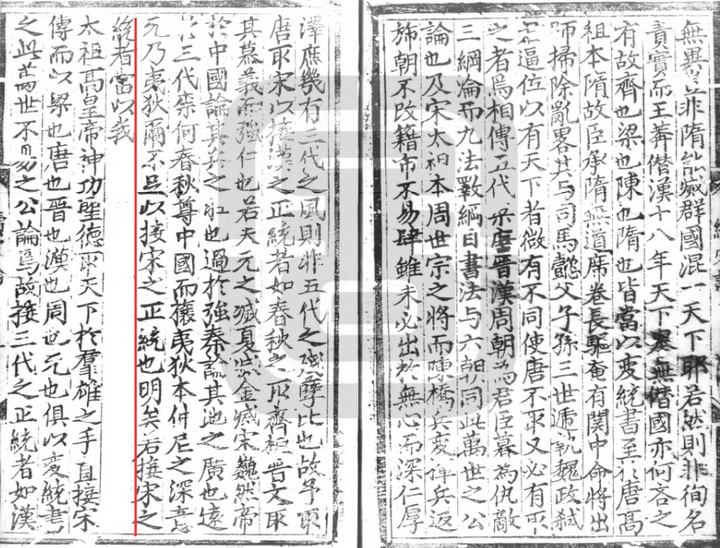 無異豈非隋能滅群國混一天下耶若然則非徇名
責實而王莽僭漢十八年天下豈無僭國亦何吝之
有故齊也梁也陳也隋也皆當以变統書至於唐高
祖本隋故臣承隋無道席卷長驅奄有関中命將出
師掃除亂畧其与司馬懿父子孫三世遞執魏政弑
君逼位以有天下者微有不同使唐不取又必有取
之者爲相傳五代梁唐晉漢周朝爲君臣暮為仇敵
三綱淪而九法斁綱目書法与六朝同此萬世之公
論也及宋太祖本周世宗之將而陳橋兵变擁兵返
斾朝不改籍市不易肆雖未必出於無心而深仁厚
澤庶幾有三代之風則非五代之殘孽比也故予取
唐取宋以接漢之正統者如春秋之取齊桓晋文取
其慕義而强仁也若夫元之滅夏滅金滅宋巍然帝
於中國論其兵之强也過於強秦論其地之廣也遠
於三代柰何春秋尊中國而攘夷狄本仲尼之深意
元乃夷狄爾不足以接宋之正統也明矣若接宋之
統者當以我
太祖高皇帝神功聖德取天下於羣雄之手直接宋
傳而以梁也唐也晉也漢也周也元也俱以变統書
之此萬世不易之公論焉故接三代之正統者如漢